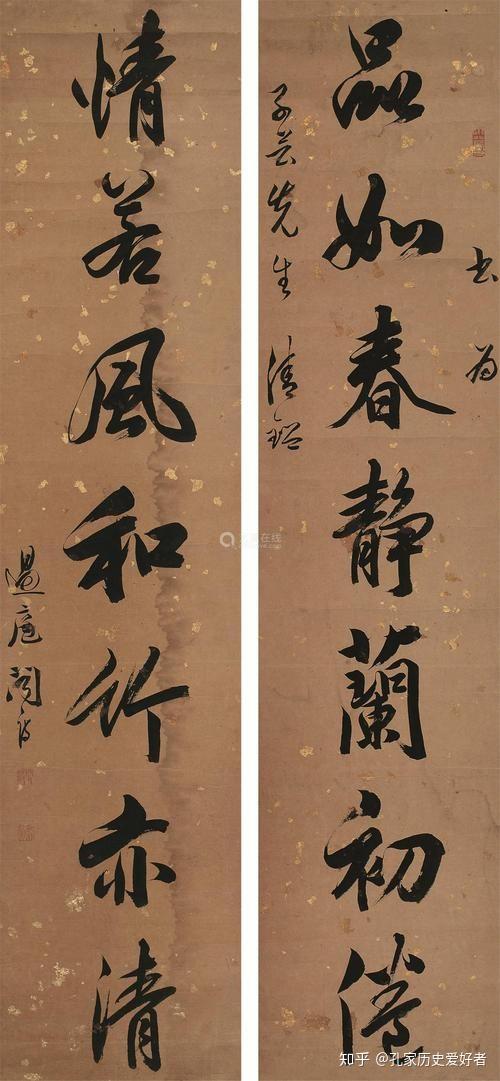 書為
品如春静蘭初
子芸先生清鑑
情若風和竹亦清
知乎 @孔家历史爱好者